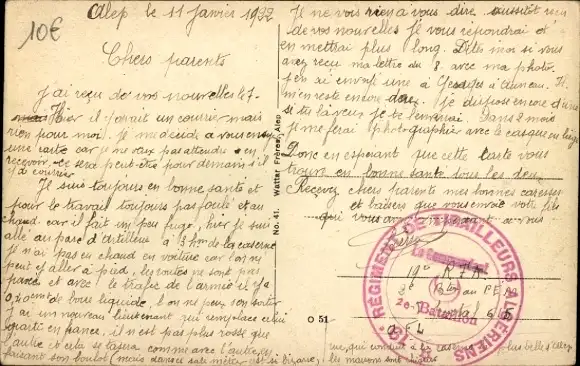 10€
Alep le 11 Janvier 1932
Chers parents
J'ai reçu de vos nouvelles le 7-
Hier il y avait un courrier mais
rien pour moi. Je me décide à vous envoyer
une carte car je ne veux pas attendre d'en
recevoir. Ce sera peut-être pour demain s'il
y a du courrier.
Je suis toujours en bonne santé et
pour le travail toujours pas foulé et au
chaud car il fait un peu frais, hier je suis
allé au parc d'artillerie à 3 km de la caserne
Je n'ai pas eu chaud en voiture car on ne
peut y aller à pied, les routes ne sont pas
et avec le trafic de l'armée il y a
de boue liquide, l'on ne peut en sortir
J'ai un nouveau lieutenant qui remplace celui
parti en france, il n'est pas plus rosse que
l'autre et cela se tasera comme avec l'autre en
faisant son boulot (mais dans ce sale métier c'est si bizarre,
Je ne vois rien à vous dire, aussitôt
de vos nouvelles je vous répondrai et
en mettrai plus long. Dites moi si vous
avez reçu ma lettre du 8 avec ma photo.
J'en ai envoyé une à Georges
m'en reste encore deux. Je
si tu la veux je te l'enverrai. Dans 2 mois
je me ferai photographier avec le casque en liège
Donc en espérant que cette carte vous
trouve en bonne santé tous les deux
Recevez chers parents mes bonnes caresses
et baisers que vous envoie votre fils
qui vous aime pensant à vous
No. 41. Wattar Frères, Alep
O 51
RÉGIMENT DE TIRAILLEURS ALGÉRIENS
19e R.T.A.
Bataillon
vue, qui conduit à la caserne plus belle d'Alep
les maisons sont